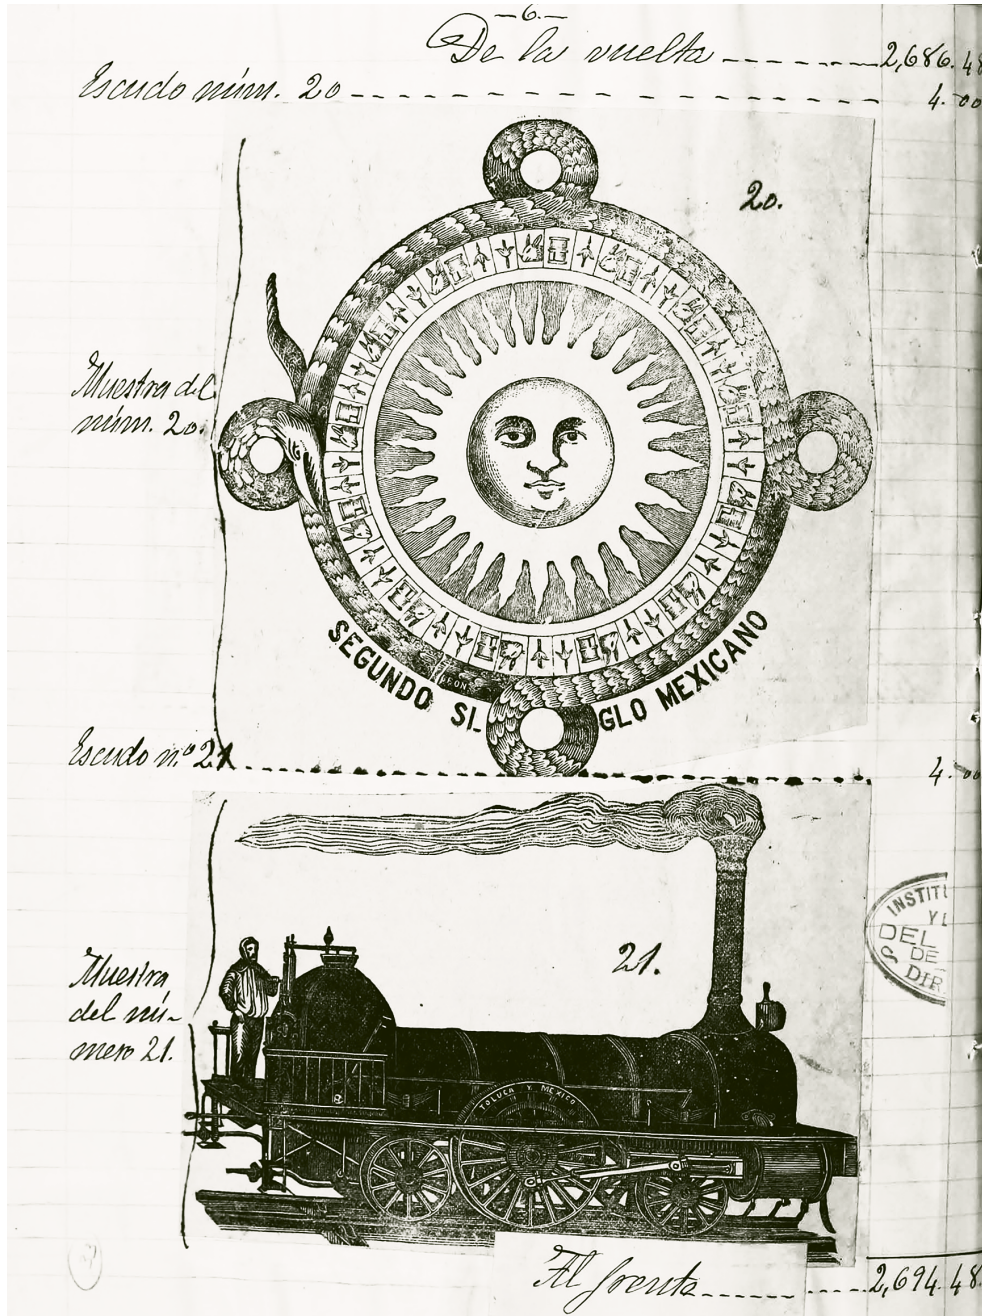 —6.—
De la vuelta 2,686.48
Escudo núm. 20 4.00
20.
Muestra del
núm. 20.
SEGUNDO SI-
GLO MEXICANO
Escudo n.º 21 4.00
21.
Muestra
del nú-
mero 21.
TOLUCA Y MEXICO
INSTITU
Y L
DEL
DE
DIR
Al frente 2,694.48